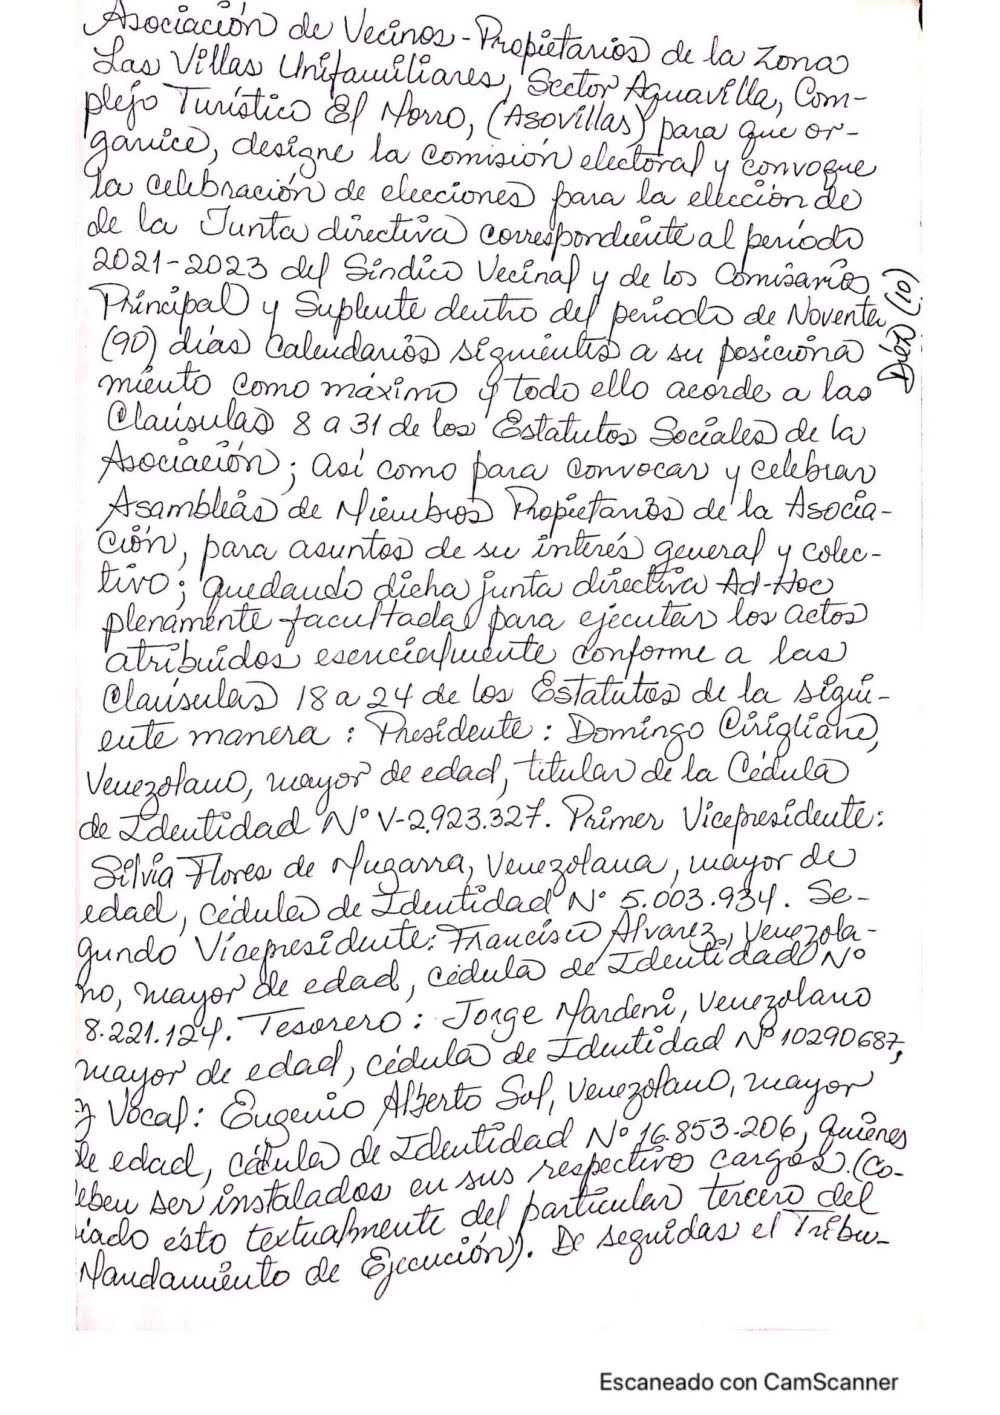 Asociación de Vecinos-Propietarios de la Zona
Las Villas Unifamiliares, Sector Aguavilla, Com-
plejo Turístico El Morro, (Asovillas) para que or-
ganice, designe la comisión electoral y convoque
la celebración de elecciones para la elección de
de la Junta directiva correspondiente al período
2021-2023 del Síndico Vecinal y de los Comisarios
Principal y Suplente dentro del período de Noventa
(90) días Calendarios siguientes a su posiciona
miento como máximo y todo ello acorde a las
Claúsulas 8 a 31 de los Estatutos Sociales de la
Asociación; así como para convocar y celebrar
Asambleás de Miembros Propietarios de la Asocia-
ción, para asuntos de su interés general y colec-
tivo; quedando dicha junta directiva Ad-Hoc
plenamente facultada para ejecutar los actos
atribuidos esencialmente conforme a las
Claúsulas 18 a 24 de los Estatutos de la sigui-
ente manera: Presidente: Domingo Cirigliano,
Venezolano, mayor de edad, titular de la Cédula
de Identidad N° V-2.923.327. Primer Vicepresidente:
Silvia Flores de Mugarra, Venezolana, mayor de
edad, cédula de Identidad N° 5.003.934. Se-
gundo Vicepresidente: Francisco Alvarez, Venezola-
no, mayor de edad, cédula de Identidad N°
8.221.124. Tesorero: Jorge Mardeni, Venezolano
mayor de edad, cédula de Identidad N° 10290687,
y Vocal: Eugenio Alberto Sol, Venezolano, mayor
de edad, cédula de Identidad N° 16.853-206, quienes
deben ser instalados en sus respectivo cargos. (Co-
iado ésto textualmente del particular tercero del
Mandamiento de Ejecución). De seguidas el Tribu-
Diez (10)
Escaneado con CamScanner